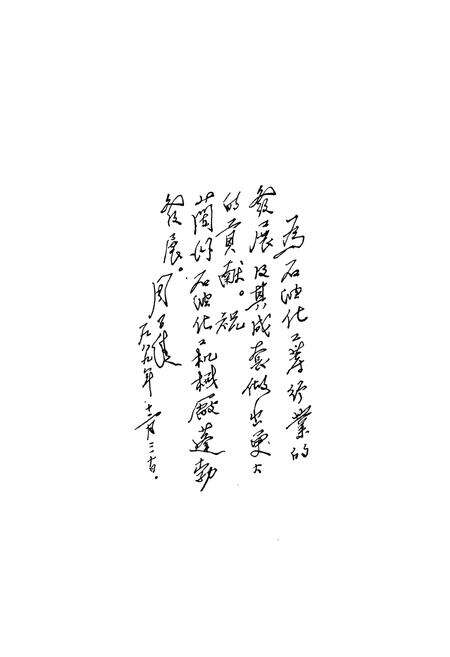 為石油化工等行業的
發展及其成套做出更大
的貢献。祝
蘭州石油化工机械厰蓬勃
發展。
周子健
一九八九年十二月二十日。